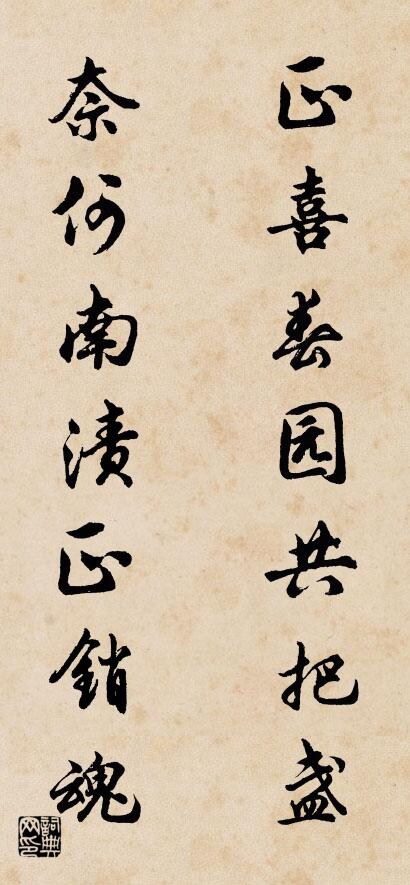 正喜春园共把盏
奈何南渍正銷魂
詞典网印